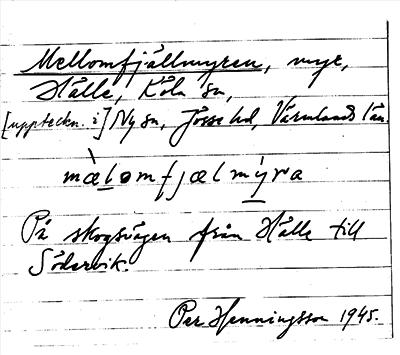 Mellomfjällmyren, myr,
Hålle, Köla sn,
[uppteckn. i] Ny sn, Jösse hd, Värmlands län.
mæ̀lomfjælmýra
På skogsvägen från Hålle till
Södervik.
Per Henningsson 1945.